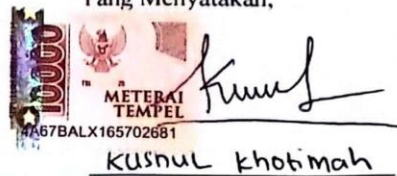 Yang Menyatakan,
10000
METERAI
TEMPEL
4A67BALX165702681
Kusnul Khotimah